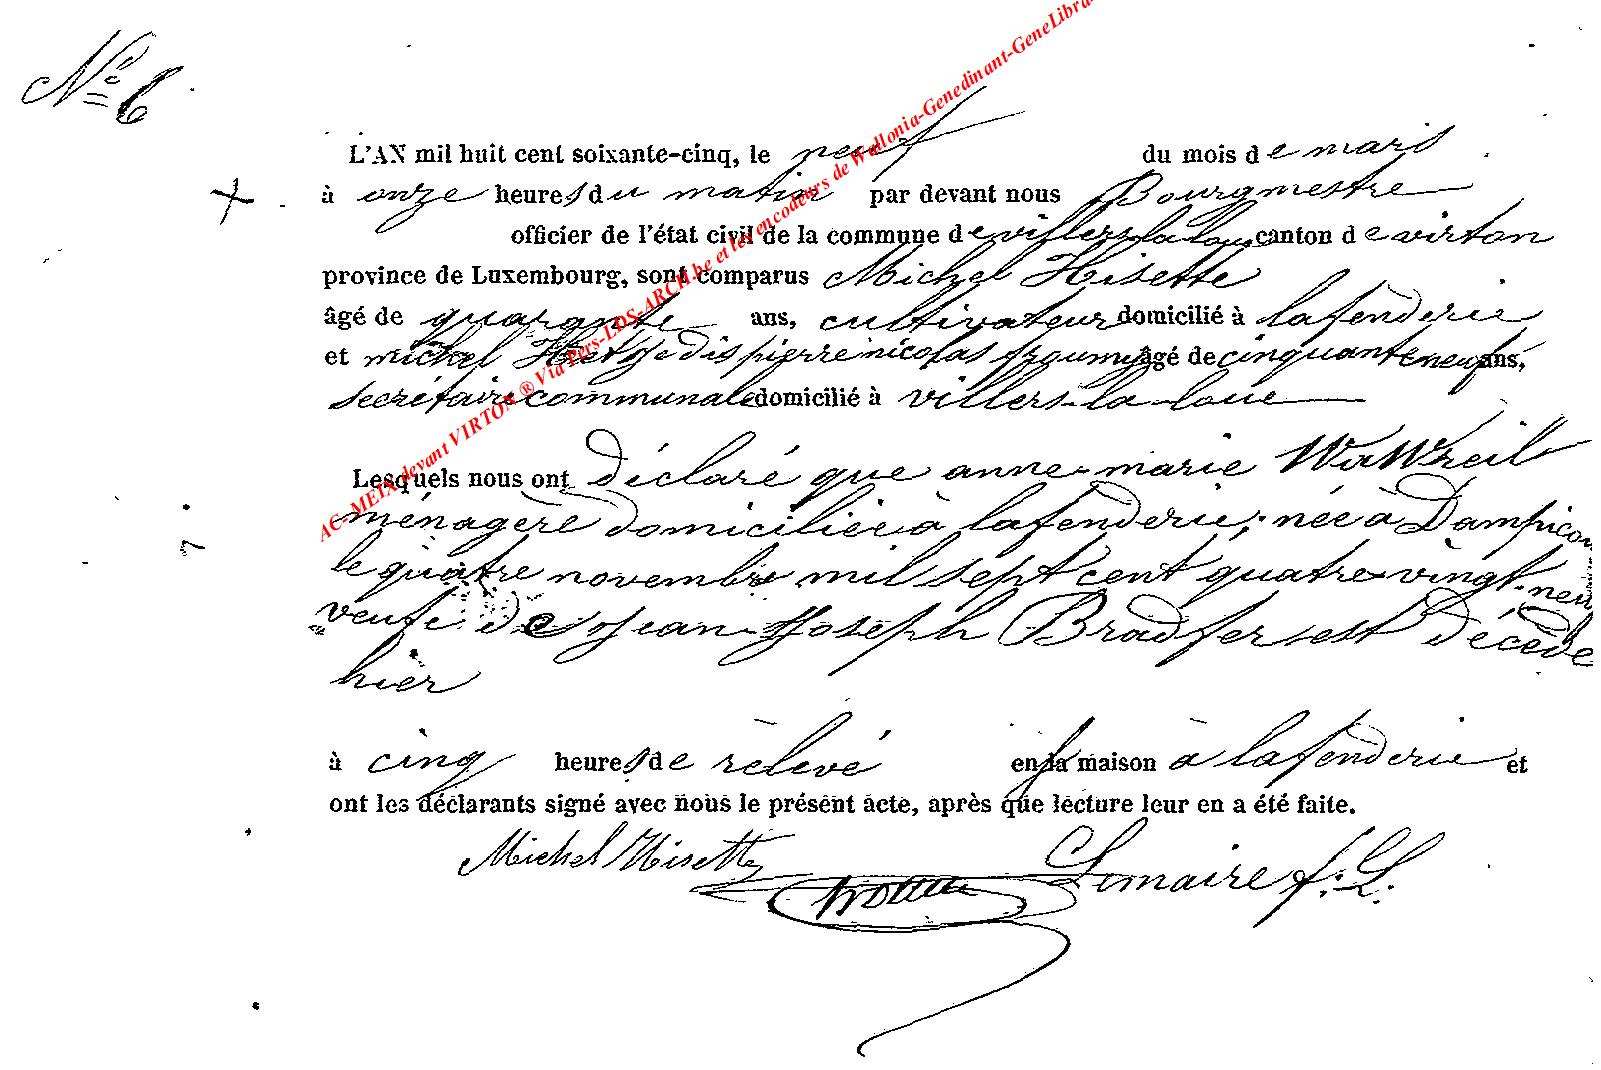 N° 6
L'AN mil huit cent soixante-cinq, le neuf du mois de mars
à onze heures du matin par devant nous Bourgmestre
officier de l'état civil de la commune de villers-la-loue canton de virton
province de Luxembourg, sont comparus Michel Hisette
âgé de quarante ans, cultivateur domicilié à lafenderie
et michel je dis pierre nicolas âgé de cinquante neuf ans,
secrétaire communale domicilié à villers-la-loue
Lesquels nous ont déclaré que anne-marie
ménagère domiciliée à lafenderie, née à Dampicou
le quatre novembre mil sept cent quatre-vingt-neu
veufe de jean-Joseph Bradfer est décédé
hier
à cinq heures de rélevé en la maison à lafenderie et
ont les déclarants signé avec nous le présent acte, après que lecture leur en a été faite.
Michel Hisette Lemaire f: L.
AC-METX devant VIRTON ® Via Pers-LDS-ARCH.be et les encodeurs de Wallonia-Genedinant-GeneLibra